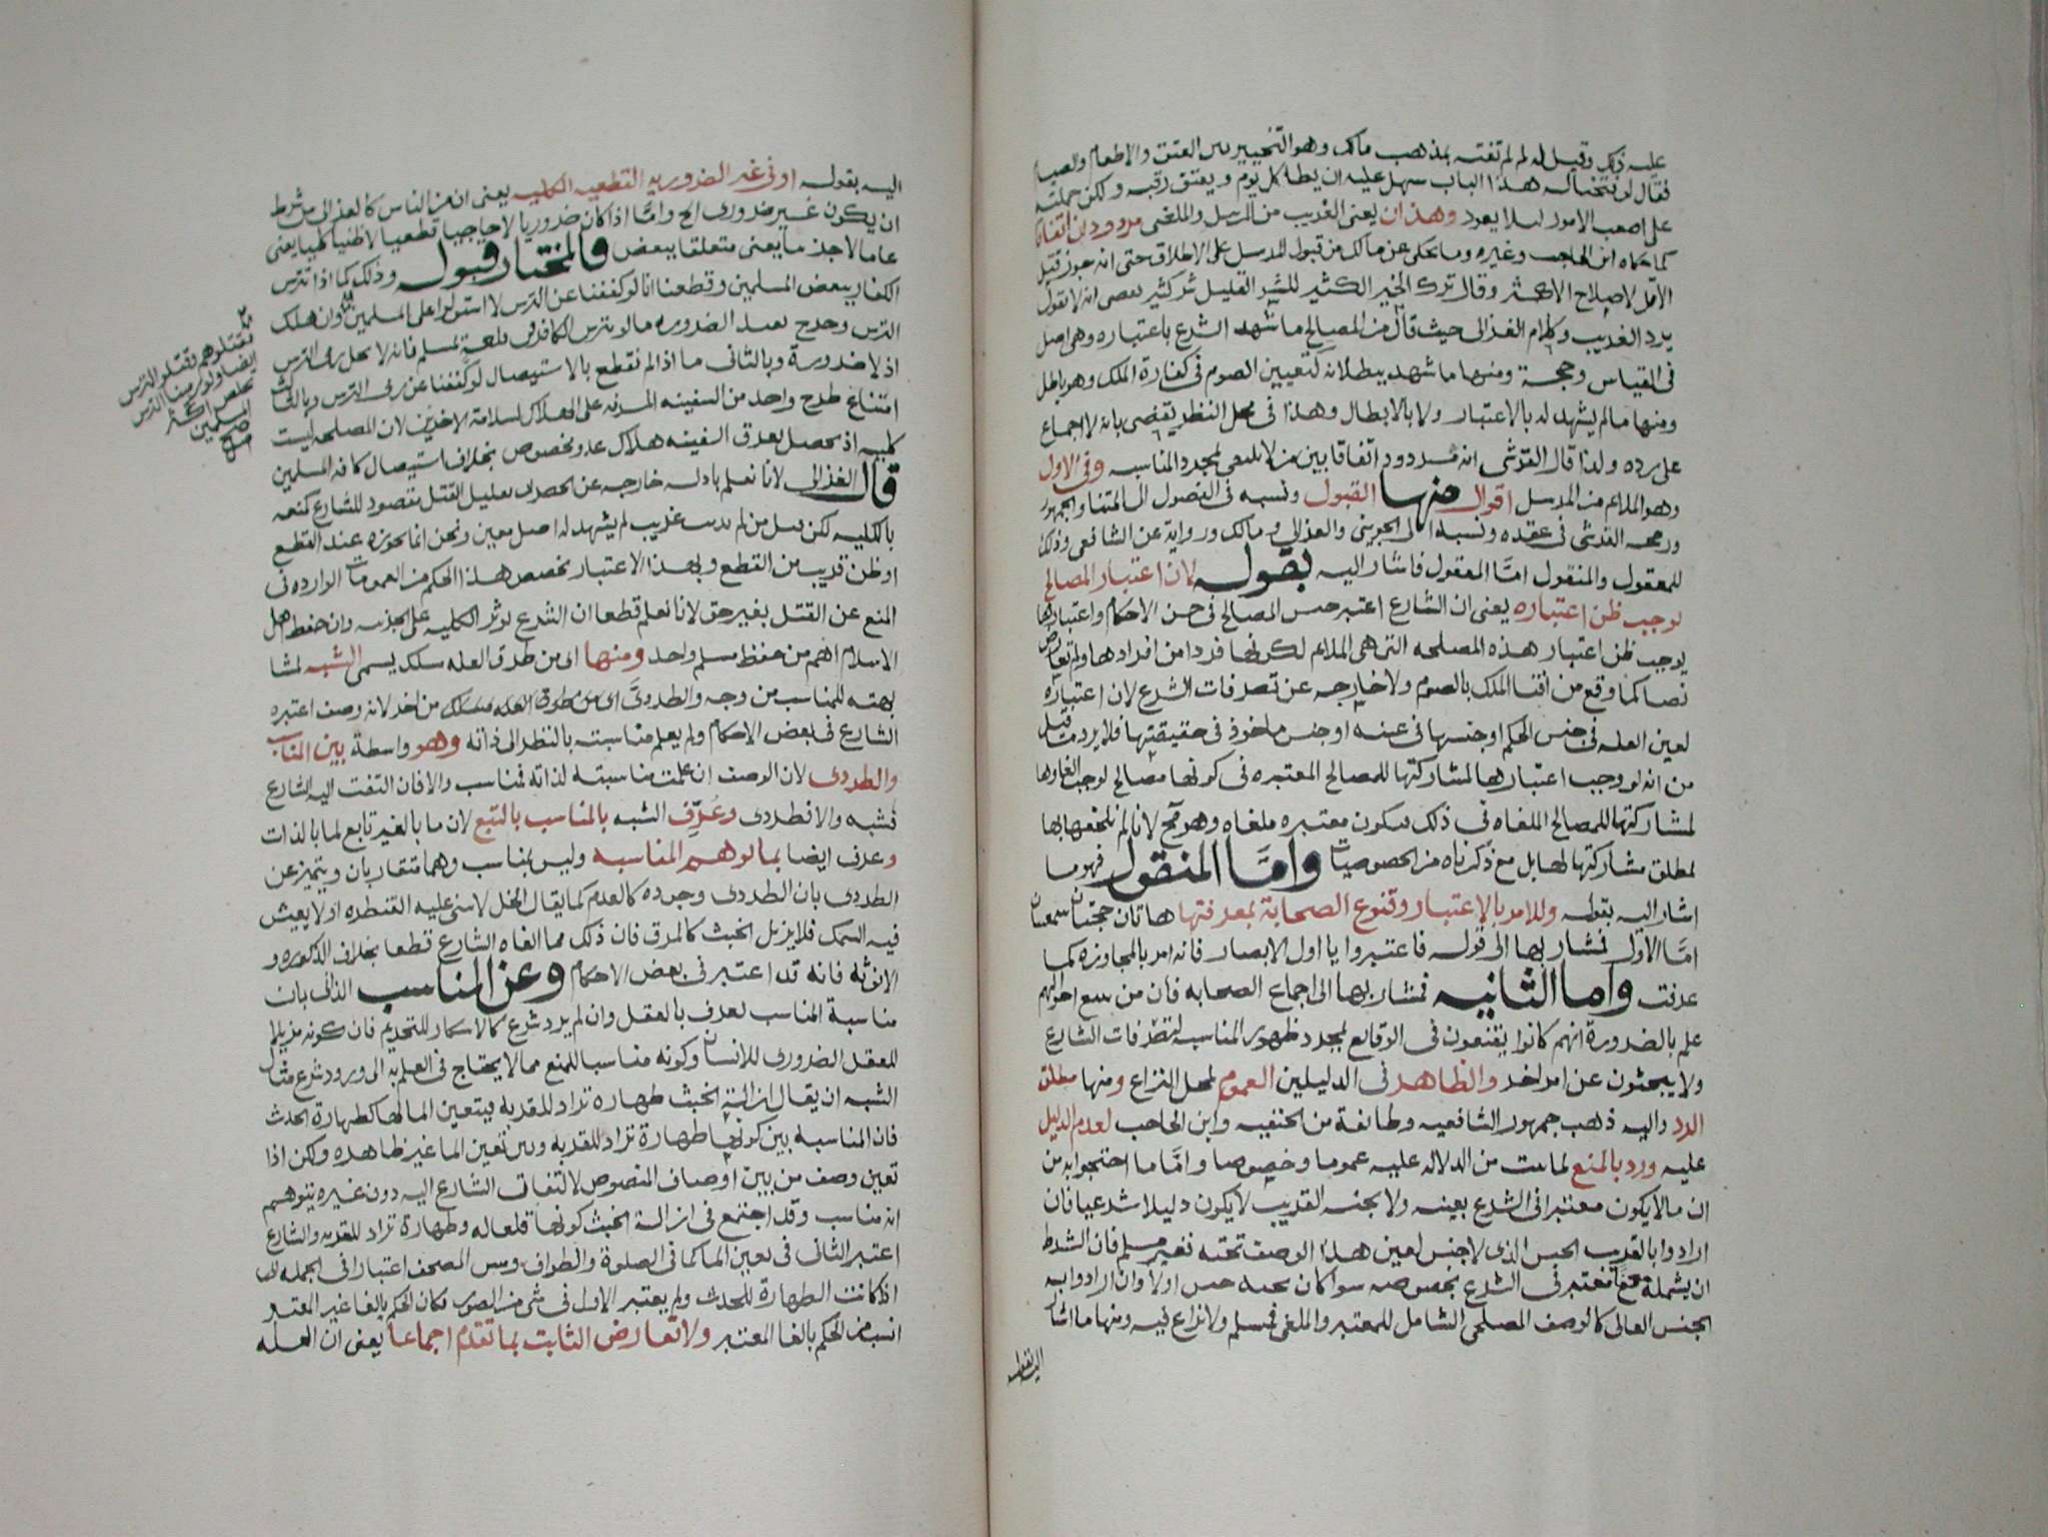 عليه ذلك وقيل له لم لم تفته بمذهب مالك وهو التخيير بين العتق والاطعام والصيام
فقال لو فتحنا له هذا الباب سهل عليه ان يطا كل يوم ويعتق رقبه ولكن حملته
على اصعب الامور لئلا يعود وهذان يعنى الغريب من المرسل والملغى مردودان اتفاقا
كما حكاه ابن الحاجب وغيره وما يحكى عن مالك من قبول المرسل على الاطلاق حتى انه جوز قتل
الاقل لاصلاح الاكثر وقال ترك الخير الكثير للشر القليل شر كثير يعصى انه لا يقول
برد الغريب وكلام الغزالى حيث قال من المصالح ما شهد الشرع باعتباره وهى اصل
فى القياس وحجة ومنها ما شهد ببطلانه لتعيين الصوم فى كفارة الملك وهو باطل
ومنها ما لم يشهد له بالاعتبار ولا بالابطال وهذا فى محل النظر يقضى بانه لا اجماع
على رده ولذا قال القرشى انه مردود اتفاقا بين من لا يكتفى بمجرد المناسبه وفى الاول
وهو الملائم من المرسل اقوال منها القبول ونسبه فى الفصول الى ائمتنا والجمهور
ورجحه القرشى فى عقده ونسبه الى الجوينى والغزالى ومالك ورواية عن الشافعى وذلك
للمعقول والمنقول امّا المعقول فاشار اليه بقوله لان اعتبار المصالح
يوجب ظن اعتباره يعنى ان الشارع اعتبر جنس المصالح فى جنس الاحكام واعتبارها
يوجب ظن اعتبار هذه المصلحه التى هى الملائم لكونها فردا من افرادها ولم تعارض
نصا كما وقع من افتا الملك بالصوم ولا خارجه عن تصرفات الشرع لان اعتباره
لعين العله فى جنس الحكم او جنسها فى عينه او جنس ماخوذ فى حقيقتها فلا يرد ما قيل
من انه لو وجب اعتبارها لمشاركتها للمصالح المعتبره فى كونها مصالح لوجب الغاوها
لمشاركتها للمصالح الملغاه فى ذلك فيكون معتبره ملغاه وهو مح لانا لم نلحقها بها
لمطلق مشاركتها لها بل مع ذكرناه من الخصوصيات وامّا المنقول فهو ما
اشار اليه بقوله وللامر بالاعتبار وقنوع الصحابة بمعرفتها هاتان حجتان سمعيتان
امّا الاول فمشار بها الى قوله فاعتبروا يا اولى الابصار فانه امر بالمجاوزه كما
عرفت واما الثانيه فمشار بها الى اجماع الصحابه فان من تتبع احوالهم
علم بالضرورة انهم كانوا يقنعون فى الوقائع بمجرد ظهور المناسب لتصرفات الشارع
ولا يبحثون عن امر اخر والظاهر فى الدليلين العموم لمحل النزاع ومنها مطلق
الرد واليه ذهب جمهور الشافعيه وطائفة من الحنفيه وابن الحاجب لعدم الدليل
عليه ورد بالمنع لما ثبت من الدلاله عليه عموما وخصوصا وامّا ما احتجوا به من
ان ما لا يكون معتبرا فى الشرع بعينه ولا بجنسه القريب لا يكون دليلا شرعيا فان
ارادوا بالقريب الجنس الذى لا جنس لعين هذا الوصف تحته فغير مسلم فان الشرط
ان يشمله معنى معتبر فى الشرع بخصوصه سوا كان تحته جنس اولا وان ارادوا به
الجنس العالى كالوصف المصلحى الشامل للمعتبر والملغى فمسلم ولا نزاع فيه ومنها ما اشار
اليه بقوله
اليه بقوله او فى غير الضروريه القطعيه الكليه يعنى ان من الناس كالغزالى من شرط
ان يكون غير ضرورى الخ وامّا اذا كان ضروريا لا حاجيا قطعيا لا ظنيا كليا يعنى
عاما لا جزئيا يعنى متعلقا ببعض فالمختار قبوله وذلك كما اذا تترس
الكفار ببعض المسلمين وقطعنا انا لو كففنا عن الترس لاستولوا على المسلمين وان هلك
الترس وخرج بقيد الضروره ما لو تترس الكافر فى قلعة بمسلم فانه لا يحل رمى الترس
اذ لا ضرورة وبالثانى ما اذا لم نقطع بالاستيصال لو كففنا عن رمى الترس وبالثالث
امتناع طرح واحد من السفينه المشرفه على الهلاك لسلامة الاخرين لان المصلحه ليست
كليه اذ يحصل بغرق السفينه هلاك عدد مخصوص بخلاف استيصال كافه المسلمين
قال الغزالى لانا نعلم بادله خارجه عن الحصر ان تعليل القتل مقصود للشارع كمنعه
بالكليه لكن قتل من لم يذنب غريب لم يشهد له اصل معين ونحن انما نجوزه عند القطع
او ظن قريب من القطع وبهذا الاعتبار نخصص هذا الحكم من العمومات الوارده فى
المنع عن القتل بغير حق لانا نعلم قطعا ان الشرع يوثر الكليه على الجزئيه وان حفظ اهل
الاسلام اهم من حفظ مسلم واحد ومنها اى من طرق العله مسلك يسمى الشبه لمشا
بهته للمناسب من وجه والطردى من اخر لانه وصف اعتبره
الشارع فى بعض الاحكام ولم يعلم مناسبته بالنظر الى ذاته وهو واسطة بين المناسب
والطردى لان الوصف ان علمت مناسبته لذاته فمناسب والا فان التفت اليه الشارع
فشبه والا فطردى وعُرِّف الشبه بالمناسب بالتبع لان ما بالغير تابع لما بالذات
وعرف ايضا بما يوهم المناسبه وليس بمناسب وهما متقاربان ويتميز عن
الطردى بان الطردى وجوده كالعدم كما يقال الخل لا تبنى عليه القنطره او لا يعيش
فيه السمك فلا يزيل الخبث كالمرق فان ذلك مما الغاه الشارع قطعا بخلاف الذكوره و
الانوثه فانه قد اعتبر فى بعض الاحكام وعن المناسب الذاتى بان
مناسبة المناسب تعرف بالعقل وان لم يرد شرع كالاسكار للتحريم فان كونه مزيلا
للعقل الضرورى للانسان وكونه مناسبا للمنع مما لا يحتاج فى العلم به الى ورود شرع مثال
الشبه ان يقال ازالة الخبث طهارة تراد للقربه فيتعين الما لها كطهارة الحدث
فان المناسبه بين كونها طهارة تراد للقربه وبين تعين الما غير ظاهره ولكن اذا
تعين وصف من بين اوصاف المنصوص لالتفات الشارع اليه دون غيره يتوهم
انه مناسب وقد اجتمع فى ازالة الخبث كونها قلعا له وطهارة تراد للقربه والشارع
اعتبر الثانى فى تعين الما كما فى الصلوة والطواف ومس المصحف اعتبارا فى الجمله لها
اذ كانت الطهارة للحدث ولم يعتبر الاول فى شى من الصور فكان الحكم بالغا غير المعتبر
انسب من الحكم بالغا المعتبر ولا تعارض الثابت بما تقدم اجماعا يعنى ان العله
نقتلوهم نقتلوا الترس
ايضا ولو رمينا الترس
يخلص اكثر
المسلمين
صح